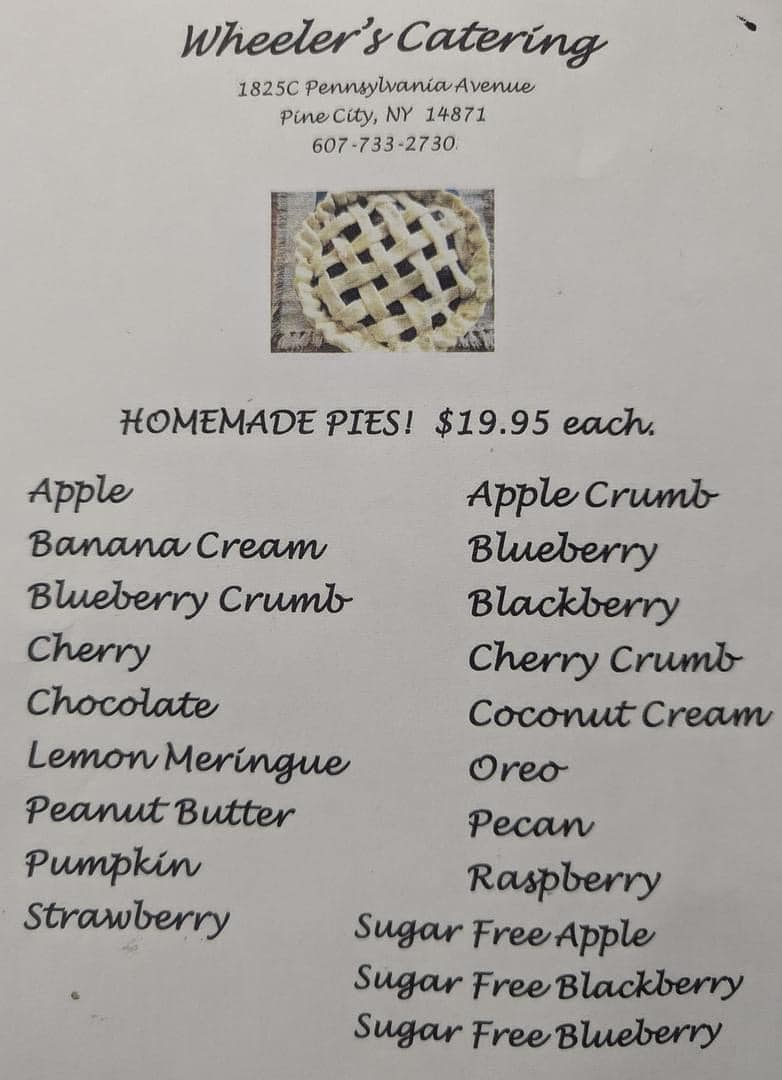 Wheeler's Catering
1825C Pennsylvania Avenue
Pine City, NY 14871
607-733-2730
HOMEMADE PIES! $19.95 each.
Apple
Banana Cream
Blueberry Crumb
Cherry
Chocolate
Lemon Meringue
Peanut Butter
Pumpkin
Strawberry
Apple Crumb
Blueberry
Blackberry
Cherry Crumb
Coconut Cream
Oreo
Pecan
Raspberry
Sugar Free Apple
Sugar Free Blackberry
Sugar Free Blueberry